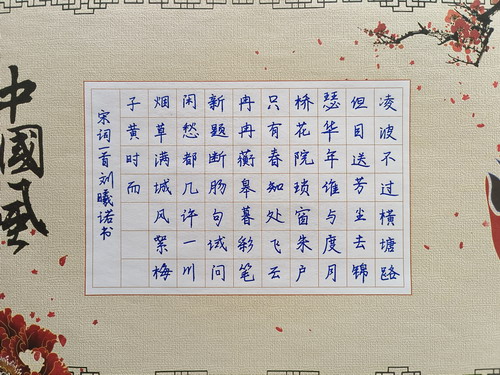 凌波不过横塘路
但目送芳尘去锦
瑟华年谁与度月
桥花院琐窗朱户
只有春知处飞云
冉冉蘅皋暮彩笔
新题断肠句试问
闲愁都几许一川
烟草满城风絮梅
子黄时而
宋词一首刘曦诺书
中國風